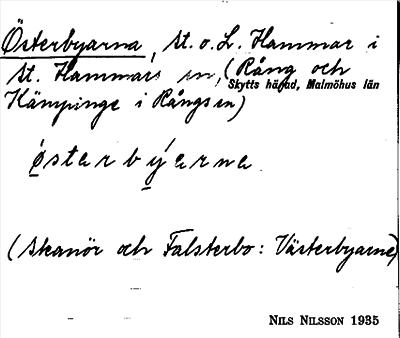 Österbyarna, St. o. L. Hammar i
St. Hammars sn, (Rång och
Skytts härad, Malmöhus län
Kämpinge i Rångs sn)
østerbýarna
(Skanör och Falsterbo: Västerbyarne)
NILS NILSSON 1935